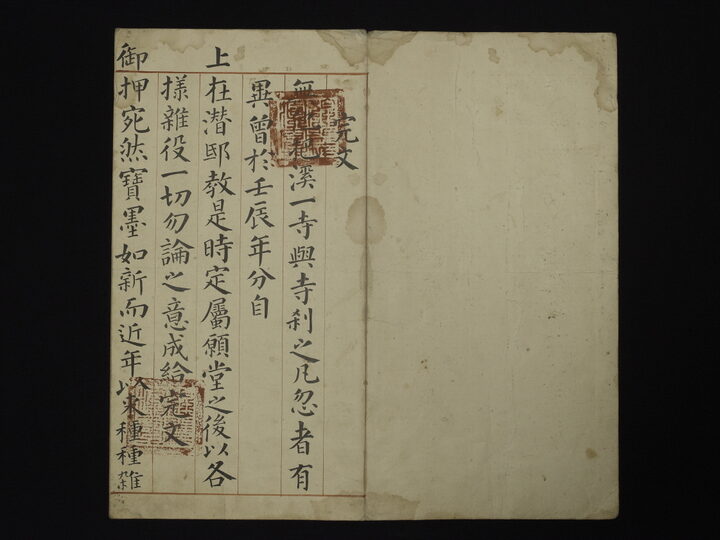 完文
花溪一寺與寺刹之凡忽者有
異曾於壬辰年分自
上在潜邸教是時定屬願堂之後以各
樣雜役一切勿論之意成給完文
御押宛然寶墨如新而近年以來種種雜